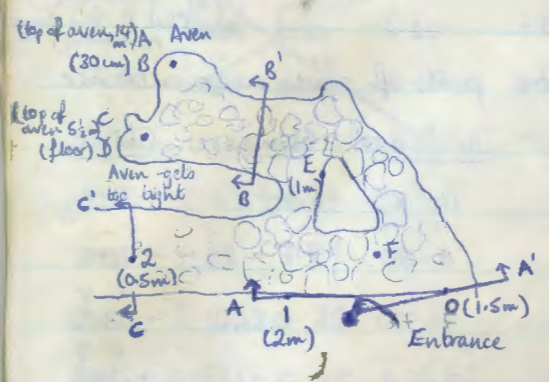 (top of aven, 14m) A Aven
(30cm) B
B'
(top of aven 5½m) C
(floor) D
Aven gets too tight
E
(1m)
B
C'
F
2
(0.5m)
A'
C
A
1
(2m)
0 (1.5m)
Entrance